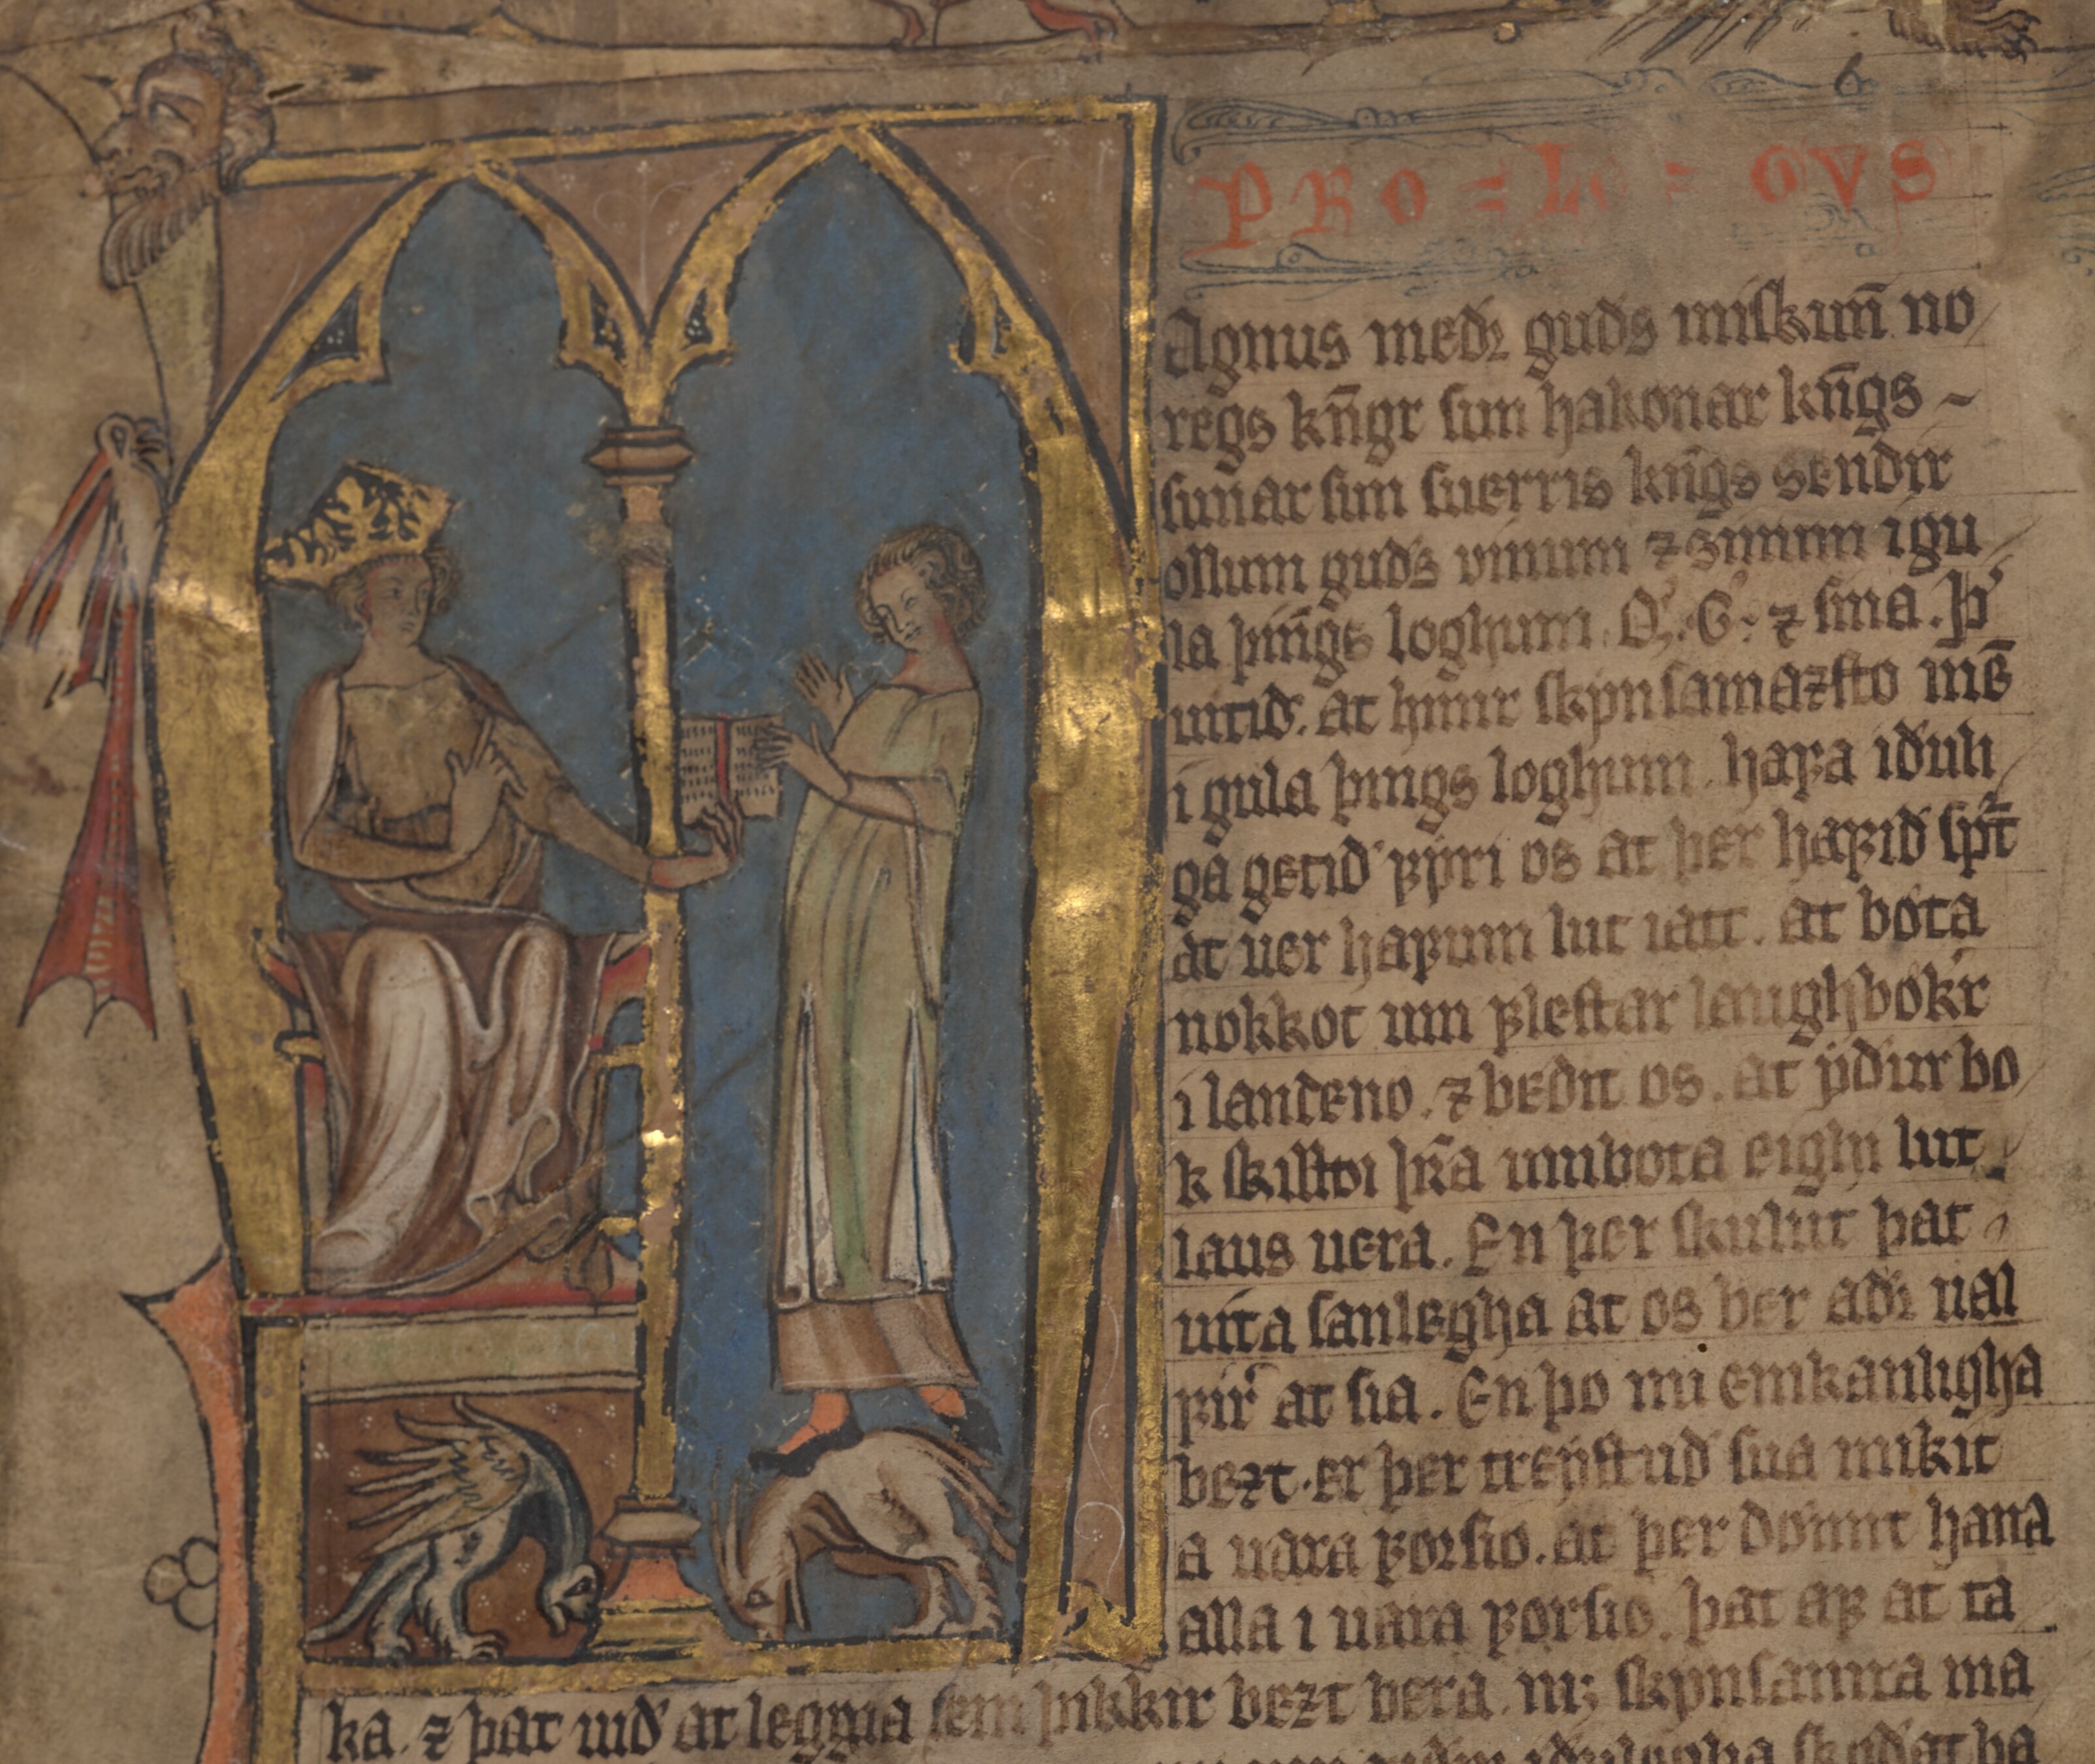 PRO=LO=GVS
Agnus medꝛ guds miſkun̄ no
regs kn̄gr ſun hakonar kn̄gs ~
ſunar ſun ſuerris kn̄gs sendir
ollum guds vinum ⁊ ſinum igu
la þin̄gs loghum. Q. G. ⁊ ſina. þ
uitid. at hinir ſkynſamaꝛſto
i gula þings loghum. hafa iduli
ga getid fyri os at þer hafid
at uer hafum lut iatt. at bota
nokkot um fleſtar laughbokr
i landeno. ⁊ bedit os. at ydur bo
k ſkilldi umbota eighi lut
laus uera. En þer ſkulut þat
uita ſanlegha at os ber adꝛ ual
at ſia. En þo nu einkanligha
bezt. er þer treyſtud ſua mikit
a uara forſio. at þer
alla i uara forſio. þat af at ta
ka. ⁊ þat uid at leggia ſem þikkir bezt bera. ſkynſamra ma